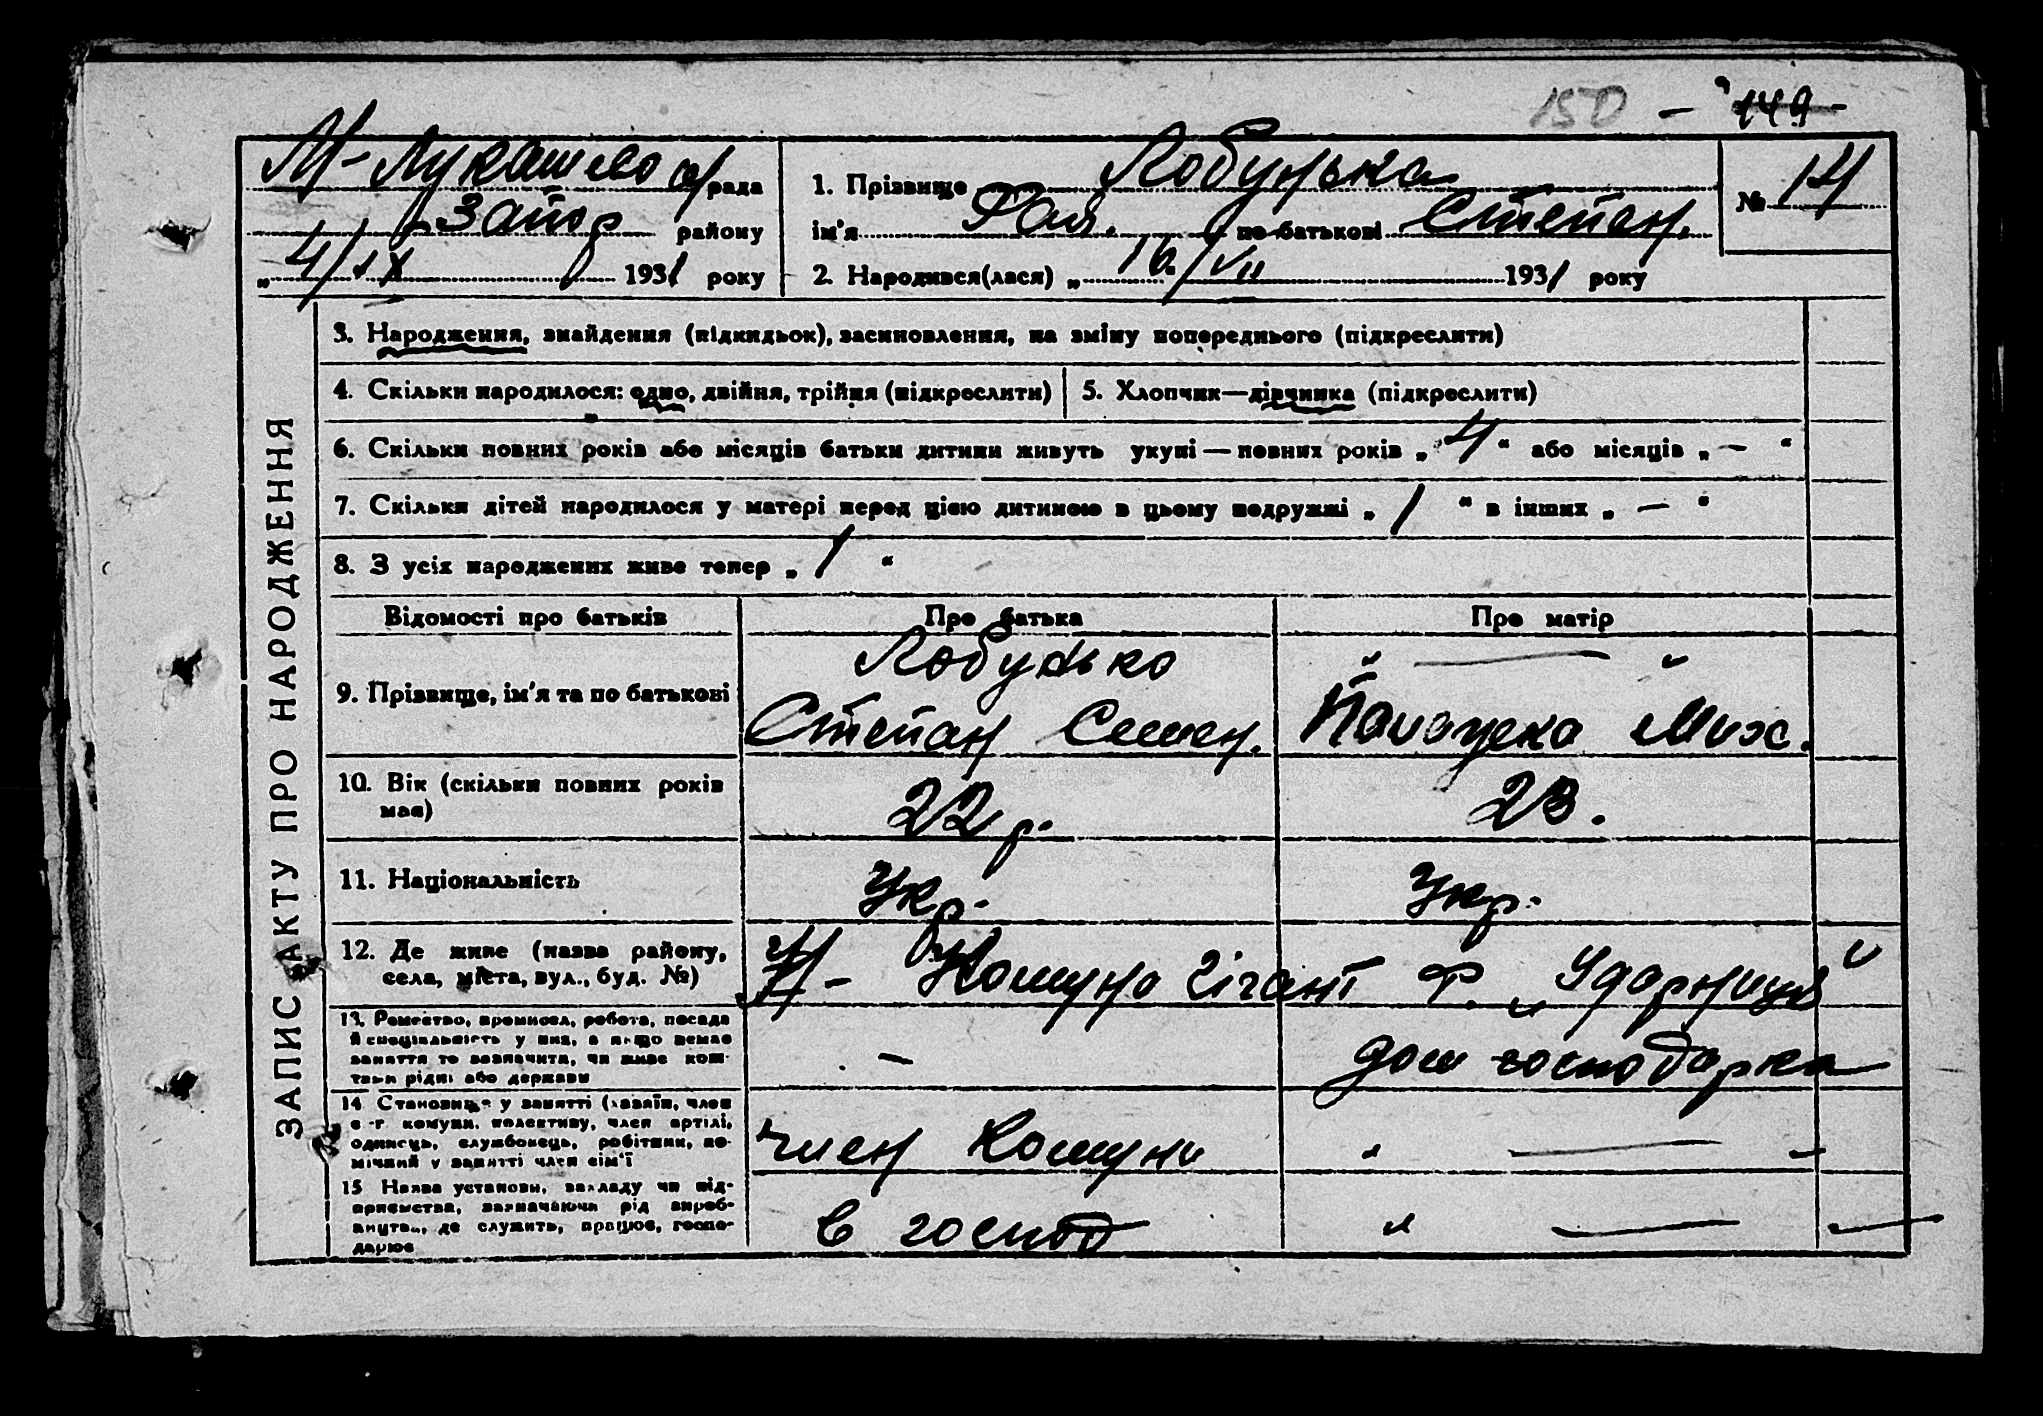 150 — 149
М-Лукашево с/рада
Запор району
„4/ІХ 1931 року
1. Прізвище Лобунька
ім'я Рая. по батькові Степан.
2. Народився(лася) „16./VII 1931 року
№ 14
ЗАПИС АКТУ ПРО НАРОДЖЕННЯ
3. Народження, знайдення (підкидьок), засиновлення, на зміну попереднього (підкреслити)
4. Скільки народилося: одно, двійня, трійня (підкреслити)
5. Хлопчик—дівчинка (підкреслити)
6. Скільки повних років або місяців батьки дитини живуть укупі — повних років „4“ або місяців „—“
7. Скільки дітей народилося у матері перед цією дитиною в цьому подружжі „1“ в інших „—“
8. З усіх народжених живе тепер „1“
Відомості про батьків Про батька Про матір
9. Прізвище, ім'я та по батькові
Лобунько „ — “
Степан Семен. Мих.
10. Вік (скільки повних років має)
22 р. 23.
11. Національність
Укр. Укр.
12. Де живе (назва району,
села, міста, вул., буд. №)
Комуна Гігант ф. „Ударниця“
13. Ремество, промисел, робота, посада
й спеціальність у них, а якщо немає
заняття то зазначити, чи живе кош-
тами рідні або держави
— дом господарка
14 Становище у занятті (хазяїн, член
с-г комуни, колективу, член артілі,
одинець, службовець, робітник, по-
мічний у занятті член сім'ї
член комуни „ — „
15 Назва установи, закладу чи під-
приємства, зазначаючи рід вироб-
ництва, де служить, працює, госпо-
дарює
в господ „ — —